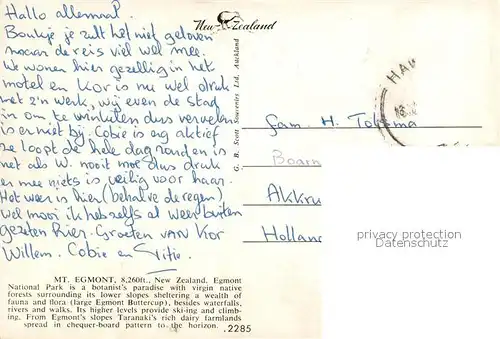 Hallo allemaal.
Boukje je zult het niet geloven
maar de reis viel wel mee.
We wonen hier gezellig in het
motel en Kor is nu wel druk
met z'n werk, wij even de stad
in om te winkelen dus vervelen
is er niet bij. Cobie is erg aktief
ze loopt de hele dag rond en is
net als W. nooit moe dus druk
en mee niets is veilig voor haar.
Het weer is hier (behalve de regen)
wel mooi ik heb zelfs al weer buiten
gezeten hier. Groeten van Kor
Willem. Cobie en Titie.
New Zealand
G. B. Scott Souvenirs Ltd, Auckland
HAM
Fam. H.
Boarn
Akkru
Hollan
privacy protection
MT. EGMONT, 8,260ft., New Zealand. Egmont
National Park is a botanist's paradise with virgin native
forests surrounding its lower slopes sheltering a wealth of
fauna and flora (large Egmont Buttercup), besides waterfalls,
rivers and walks. Its higher levels provide ski-ing and climb-
ing. From Egmont's slopes Taranaki's rich dairy farmlands
spread in chequer-board pattern to the horizon. .2285